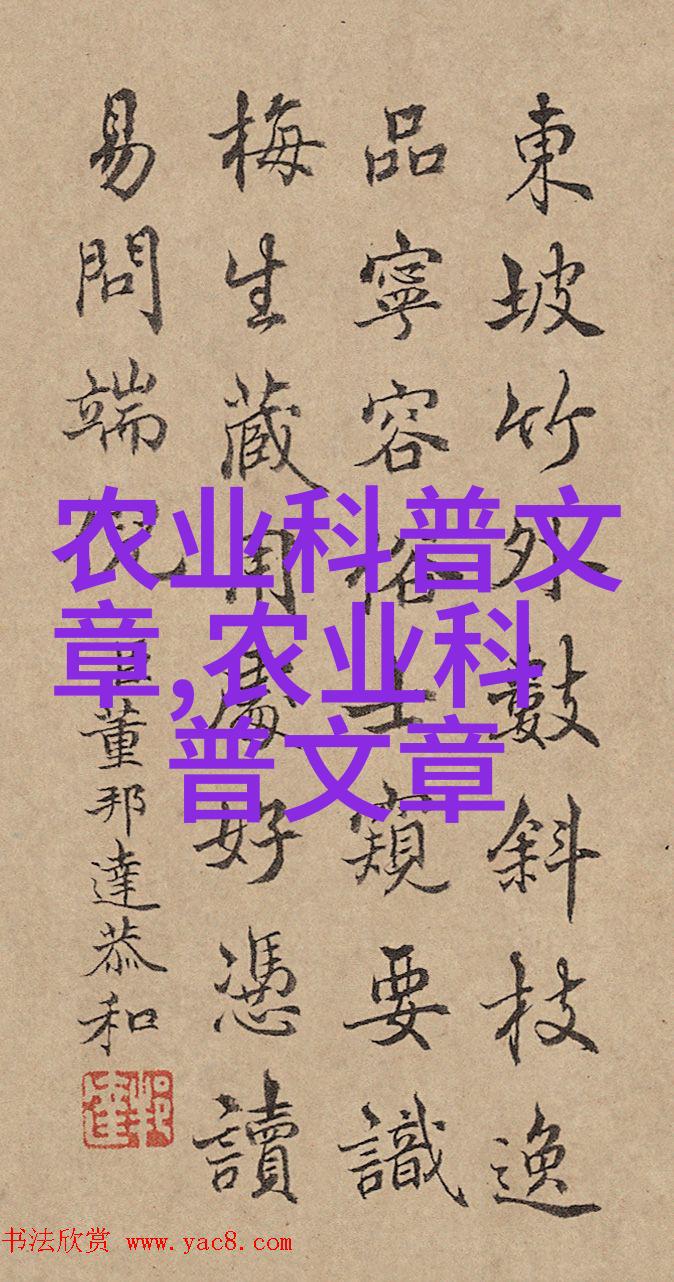 東坡竹外數斜枝逸
品寧容俗士窺要識
梅生藏用處好憑讀
易問端倪 臣董邦達恭和
农业科普文
章,农业科
普文章
书法欣赏 www.yac8.com